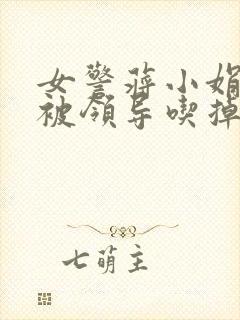 女警蒋小娟
被领导喫掉
七萌主